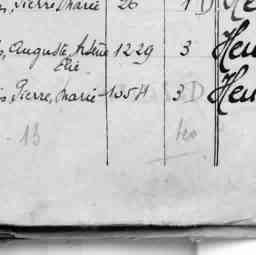 Pierre, Marie 26 1 D
Auguste, Arsène 1229 3 Heu
Elie
Pierre, Marie 1054 3 D Heu
13